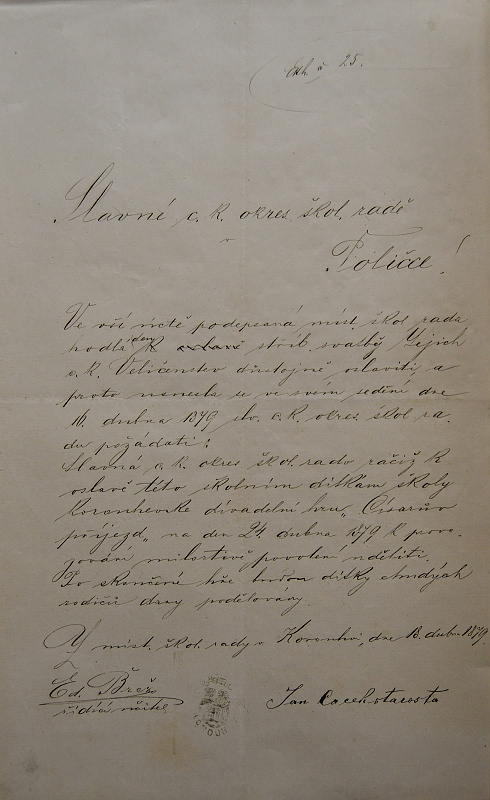 Exh. č 25.
Slavné c. k. okres. škol. radě
v
Poličce!
Ve vší úctě podepsaná míst. škol. rada
hodlá den stříb. svatby Jejich
c. k. Veličenstev důstojně oslaviti, a
proto usnesla se ve svém sedění dne
16. dubna 1879 slav. c. k. okres. škol. ra-
du požádati:
Slavná c. k. okres. škol. rado račiž k
oslavě této školním dítkám školy
Korouhevské divadelní hru „Císařův
příjezd" na den 24. dubna 1879 k provo-
zování milostivě povolení uděliti.
Po skončené hře budou dítky chudých
rodičů dary podělovány.
Z míst. škol. rady v Korouhvi, dne 18. dubna 1879.
Ed. Břež
řídící učitel
Jan starosta